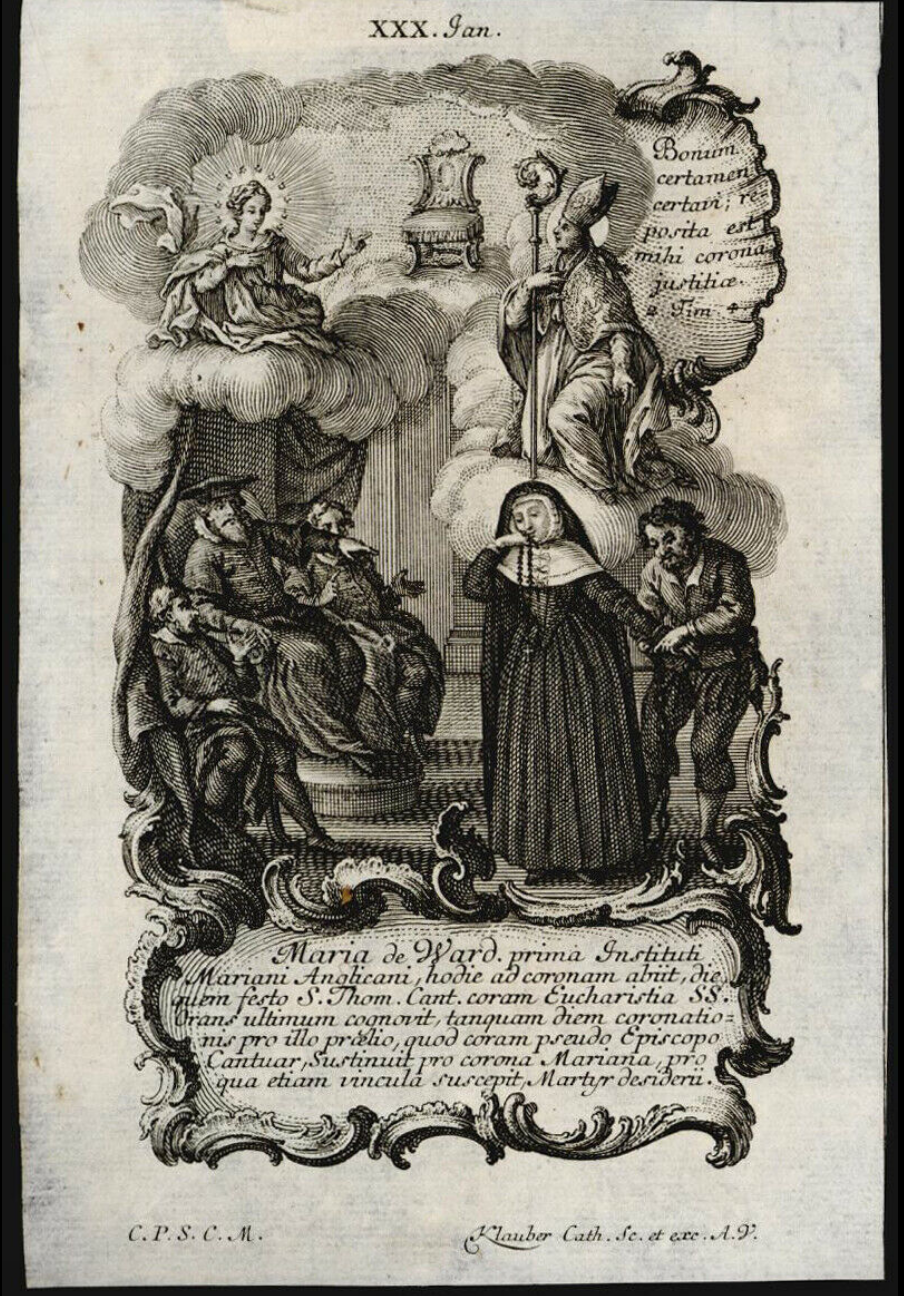 XXX. Jan.
Bonum
certamen
certavi; re=
posita est
mihi corona
justitiæ.
2 Tim 4
Maria de Ward. prima Instituti
Mariani Anglicani, hodie ad coronam abiit, die
quem festo S. Thom. Cant. coram Eucharistia SS.
Orans ultimum cognovit, tanquam diem coronatio=
nis pro illo prælio, quod coram pseudo Episcopo
Cantuar, Sustinuit pro corona Mariana, pro
qua etiam vincula suscepit, Martyr desiderii.
C. P. S. C. M.
Klauber Cath. Sc. et exc. A. V.